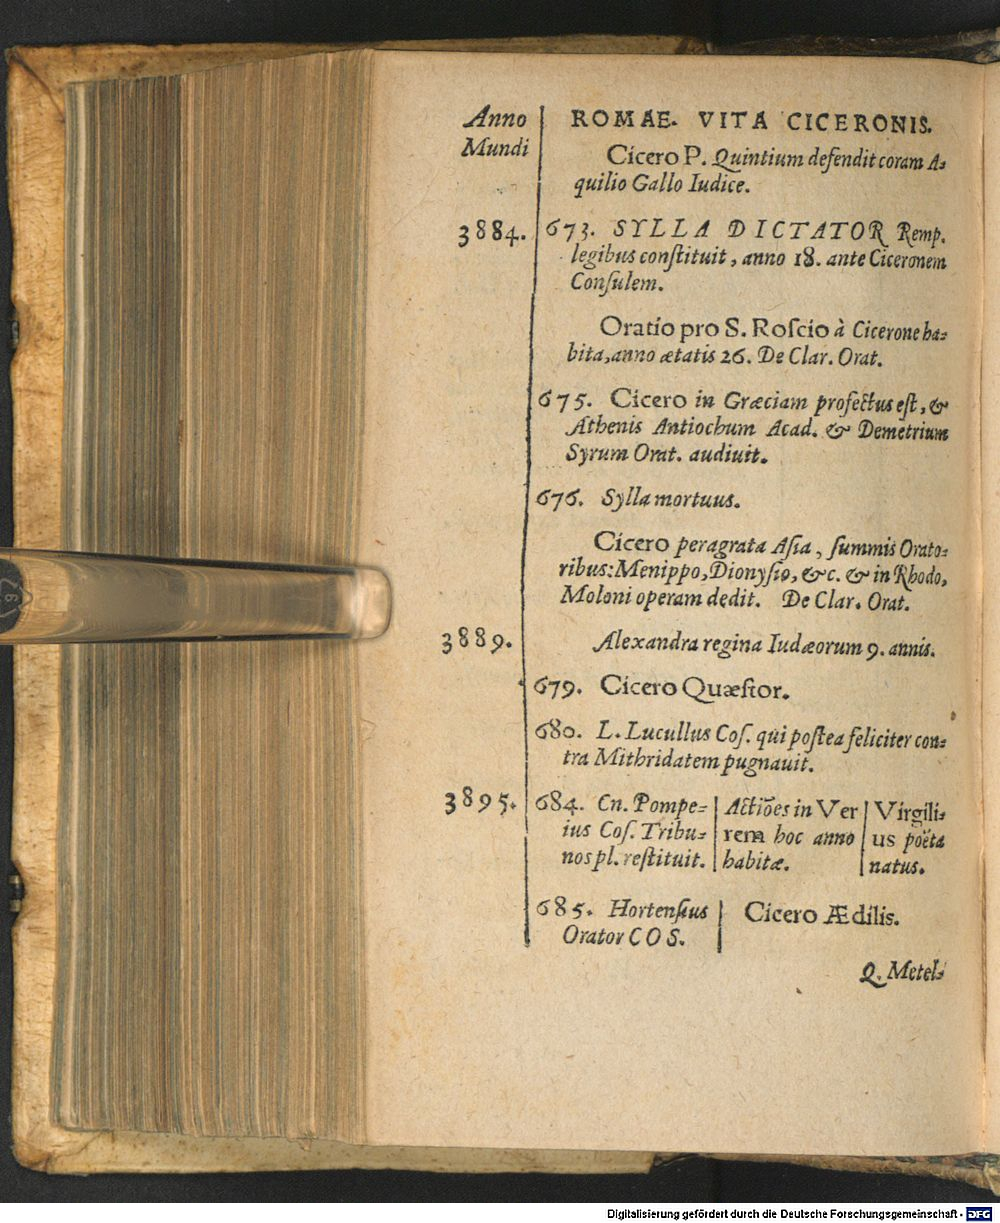 Anno
Mundi
ROMAE. VITA CICERONIS.
Cicero P. Quintium defendit coram A-
quilio Gallo Iudice.
3884.
673. SYLLA DICTATOR Remp.
legibus conſtituit, anno 18. ante Ciceronem
Conſulem.
Oratio pro S. Roſcio à Cicerone ha-
bita, anno ætatis 26. De Clar. Orat.
675. Cicero in Græciam profectus eſt, &
Athenis Antiochum Acad. & Demetrium
Syrum Orat. audiuit.
676. Sylla mortuus.
Cicero peragrata Aſia, ſummis Orato-
ribus: Menippo, Dionyſio, &c. & in Rhodo,
Moloni operam dedit. De Clar. Orat.
3889.
Alexandra regina Iudæorum 9. annis.
679. Cicero Quæſtor.
680. L. Lucullus Coſ. qui poſtea feliciter con-
tra Mithridatem pugnauit.
3895.
684. Cn. Pompe-
ius Coſ. Tribu-
nos pl. reſtituit.
Actiões in Ver
rem hoc anno
habitæ.
Virgili-
us poëta
natus.
685. Hortenſius
Orator COS.
Cicero Ædilis.
Q. Metel-
Digitalisierung gefördert durch die Deutsche Forschungsgemeinschaft - DFG